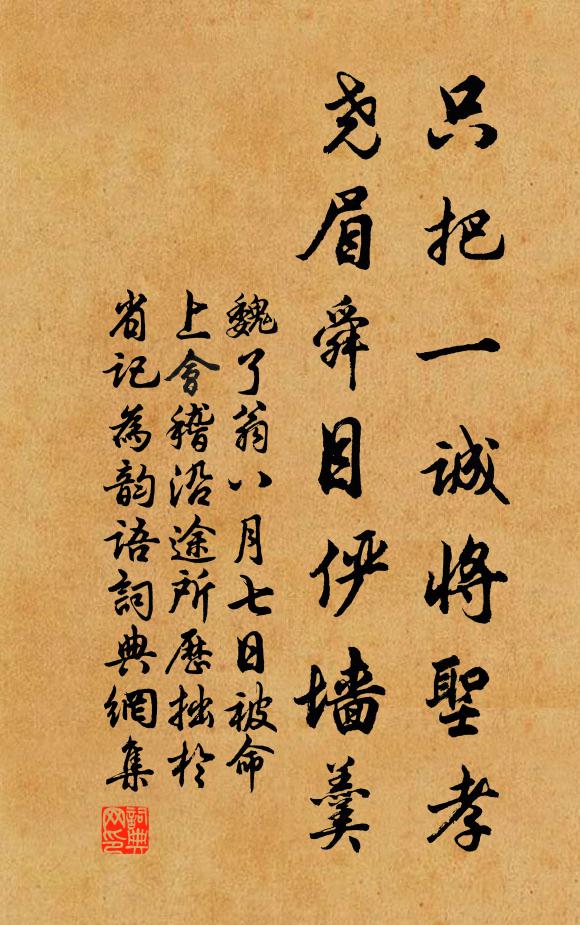 只把一诚将聖孝
尧眉舜目俨墙羹
魏了翁八月七日被命
上會稽沿途所歷拙於
省记為韵语詞典網集
詞典网印